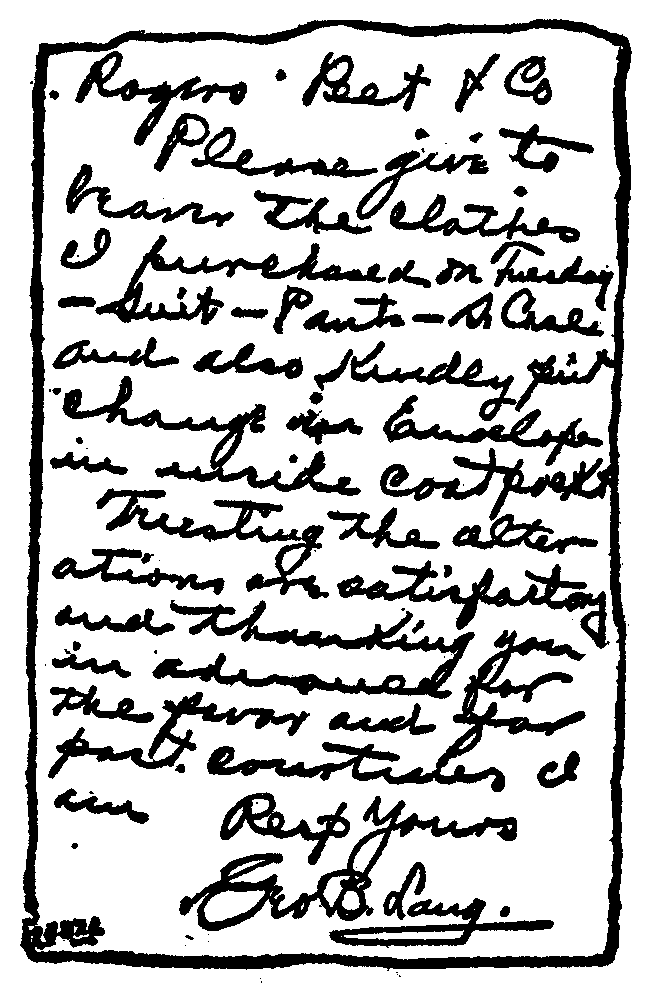 Rogers Peet & Co
Please give to
bearer the clothes
I purchased on Tuesday
- Suit - Pants - S. Case
and also Kindly put
change in Envelope
in inside coat pocket
Trusting the alter-
ations are satisfactory
and thanking you
in advance for
the favor and for
past courtesies I
am
Resp Yours
Geo B. Lang.